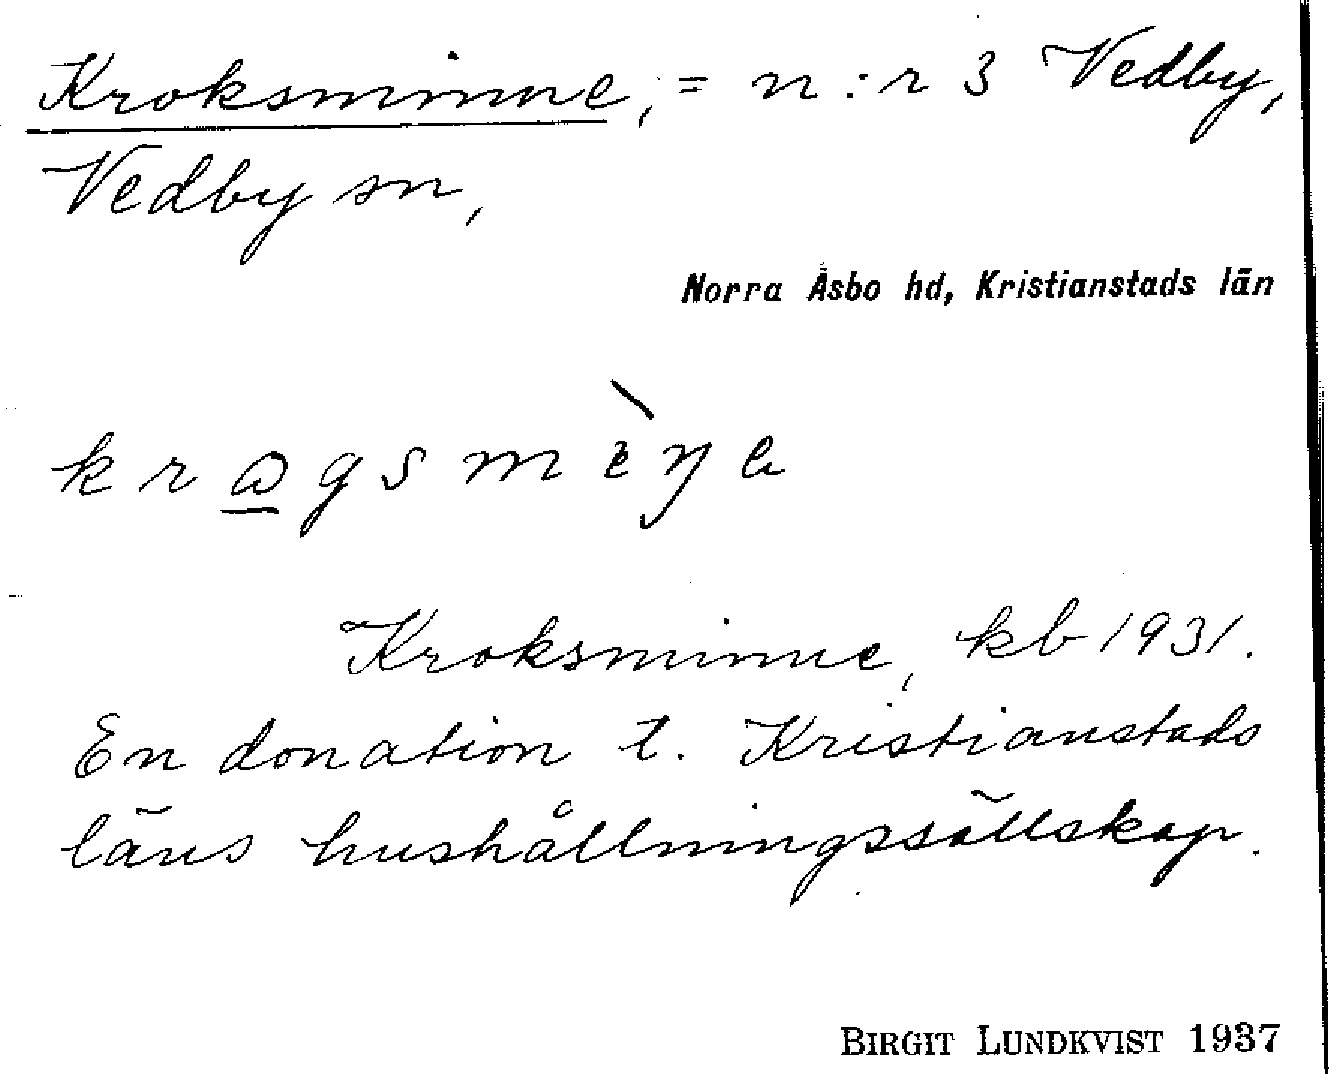 Kroksminne, = n:r 3 Vedby,
Vedby sn,
Norra Åsbo hd, Kristianstads län
Kroksminne, kb 1931.
En donation t. Kristianstads
läns hushållningssällskap.
BIRGIT LUNDKVIST 1937